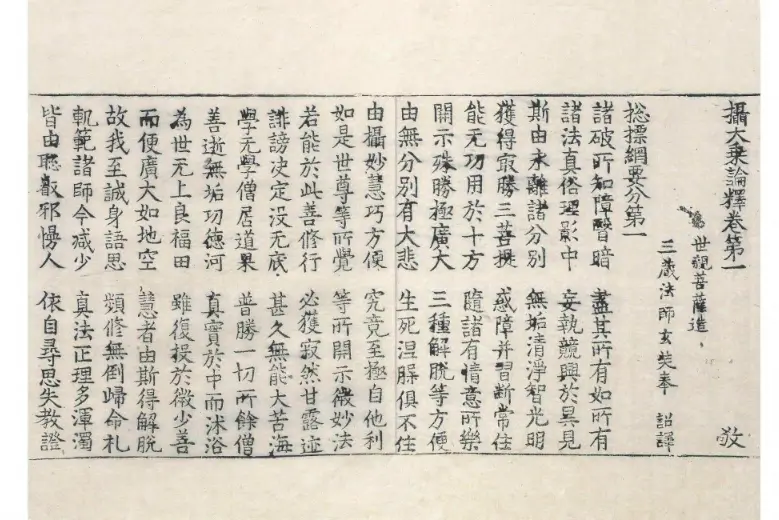 攝大乘論釋卷第一 敬
世親菩薩造
三藏法師玄奘奉 詔譯
総摽綱要分第一
諸破所知障瞖暗 盡其所有如所有
諸法真俗理影中 妄執競興於異見
斯由永離諸分別 無垢清淨智光明
獲得㝡勝三菩提 惑障并習斷常住
能无功用於十方 隨諸有情意所樂
開示殊勝極廣大 三種解脫等方便
由無分別有大悲 生死涅槃俱不住
由攝妙慧巧方便 究竟至極自他利
如是世尊等所覺 等所開示微妙法
若能於此善修行 必獲寂然甘露迹
誹謗决定没无底 甚久無能大苦海
學无學僧居道果 普勝一切所餘僧
善逝無垢功德河 真實於中而沐浴
為世无上良福田 雖復投於微少善
而便廣大如地空 慧者由斯得解脫
故我至誠身語思 頻修無倒歸命礼
軌範諸師令减少 真法正理多渾濁
皆由聦叡邪慢人 依自尋思失教證